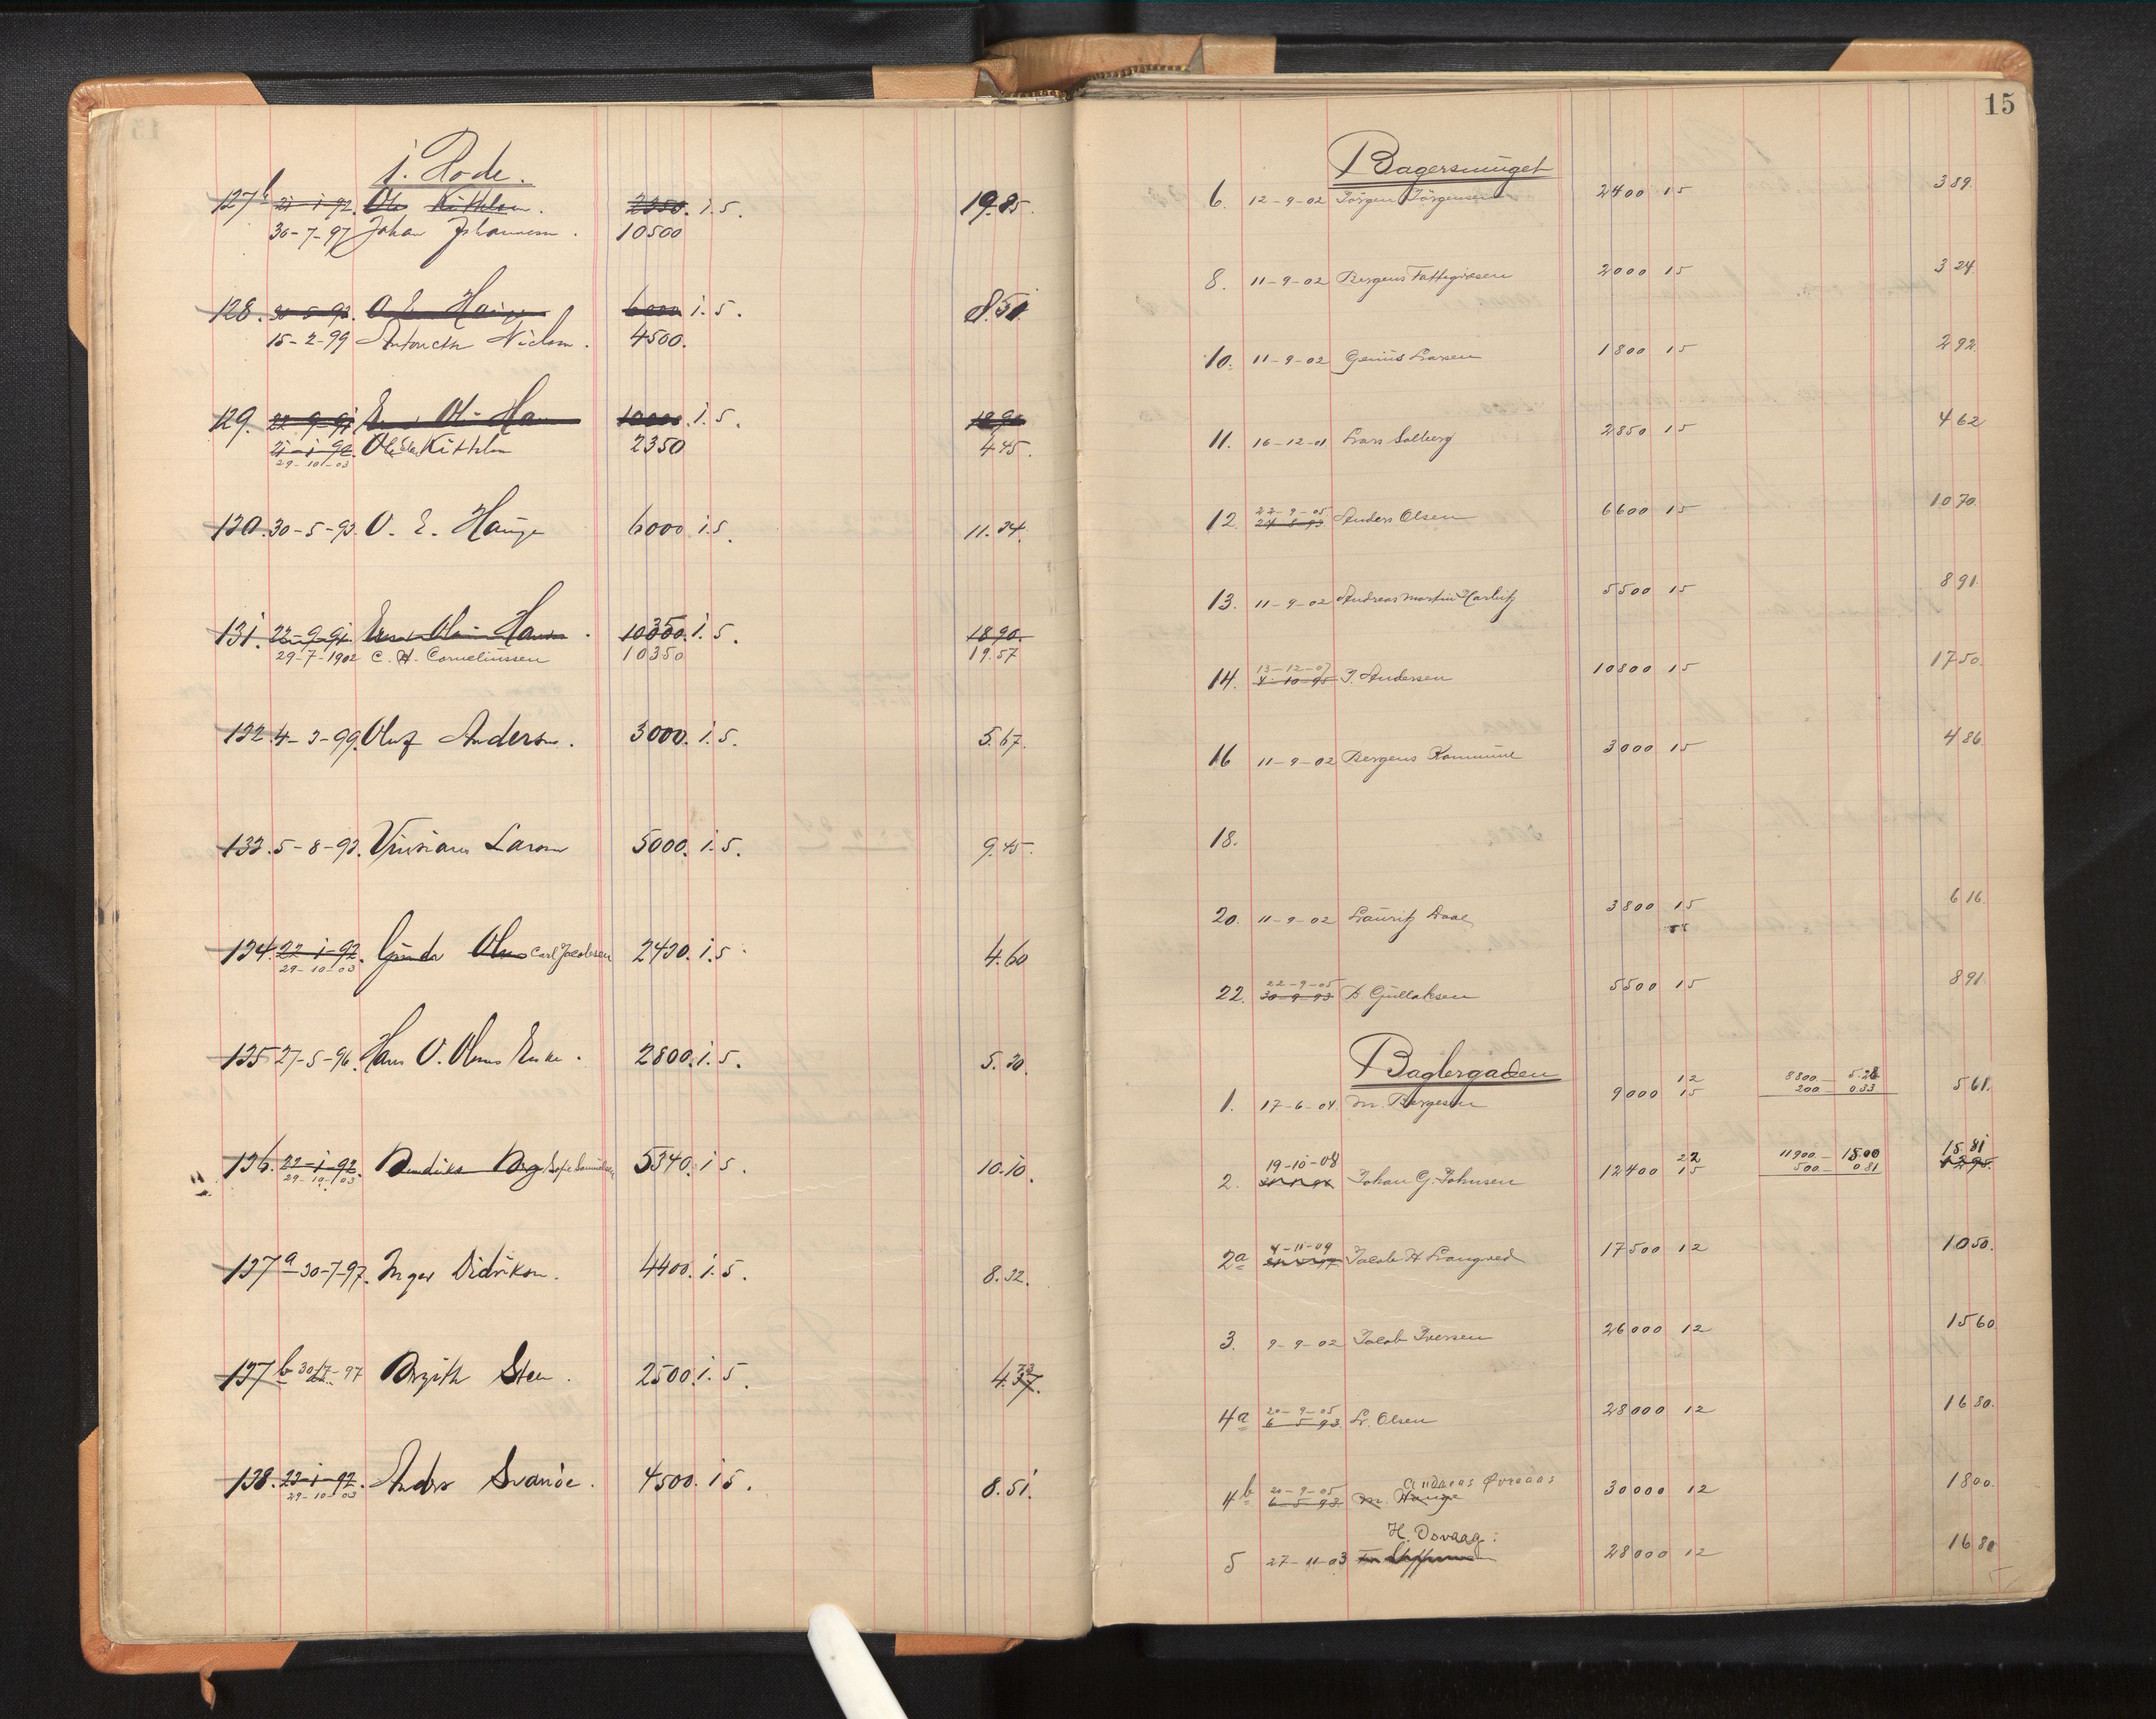 1. Rode.
127b 21-1-92. Ole Kittelsen. 2350. 1.5. 19.85.
30-7-97 Johan Johannesen. 10500
128. 30-5-93. O. E. Hauge 6000 1.5. 8.51.
15-2-99 Nielsen. 4500.
129. 22-9-91 10000. 1.5. 18.90
21-1-92. Ole Kittelsen 2350 4.45.
29-10-03
130. 30-5-93. O. E. Hauge 6000 1.5. 11.34.
131. 22-9-91. 10000. 1.5. 18.90.
29-7-1902 C. H. Corneliussen 10350 19.57
132. 4-3-99. Oluf Andersen. 3000. 1.5. 5.67.
133. 5-8-93. Larsen 5000. 1.5. 9.45.
134. 22-1-92. Olsen Carl Jacobsen 2430. 1.5. 4.60
29-10-03
135 27-5-96. Hans O. Olsens Enke. 2800. 1.5. 5.30.
136. 22-1-92. Sofie Samuelsen 5340. 1.5. 10.10.
29-10-03
137a 30-7-97. Inger Didriksen. 4400. 1.5. 8.32.
137b 30-7-97 Steen. 2500. 1.5. 4.73
138. 23-1-92. Anders Svanöe. 4500. 1.5. 8.51.
29-10-03
15
Bagersmuget
6. 12-9-02 Jörgen Jörgensen 2400 15 3 89.
8. 11-9-02 Bergens Fattigvæsen 2000 15 3 24.
10. 11-9-02 Larsen 1800 15 2 92.
11. 16-12-01 Lars Solberg 2850 15 4 62
22-9-05
12. 24-8-93 Anders Olsen 6600 15 10 70.
13. 11-9-02 Andreas Martin 5500 15 8 91.
13-12-07
14. 4-10-95 J. Andersen 10800 15 17 50.
16 11-9-02 Bergens Kommune 3000 15 4 86.
18.
20. 11-9-02 Lauritz 3800 15 6 16.
22-9-05
22. 30-9-93 D. Gullaksen 5500 15 8 91.
Baglergaden
12 8800.— 5.28
1. 17-6-04. M. Bergesen 9000 15 200 — 0.33 5 61.
19-10-08 22 11900.— 15.00 15 81
2. Johan G. Johnsen 12400 15 500.— 0 81 12 95.
4-11-09
2a Jacob H Langved 17500 12 10 50.
3. 9-9-02 Jacob Iversen 26000 12 15 60
20-9-05
4a 6 5 93. L. Olsen 28000 12 16 80.
20-9-05 Andreas Øvreaas
4b 6-5-93. M. Hauge 30000 12 18 00.
H. Osvaag.
5 27-11-03 28000 12 16 80